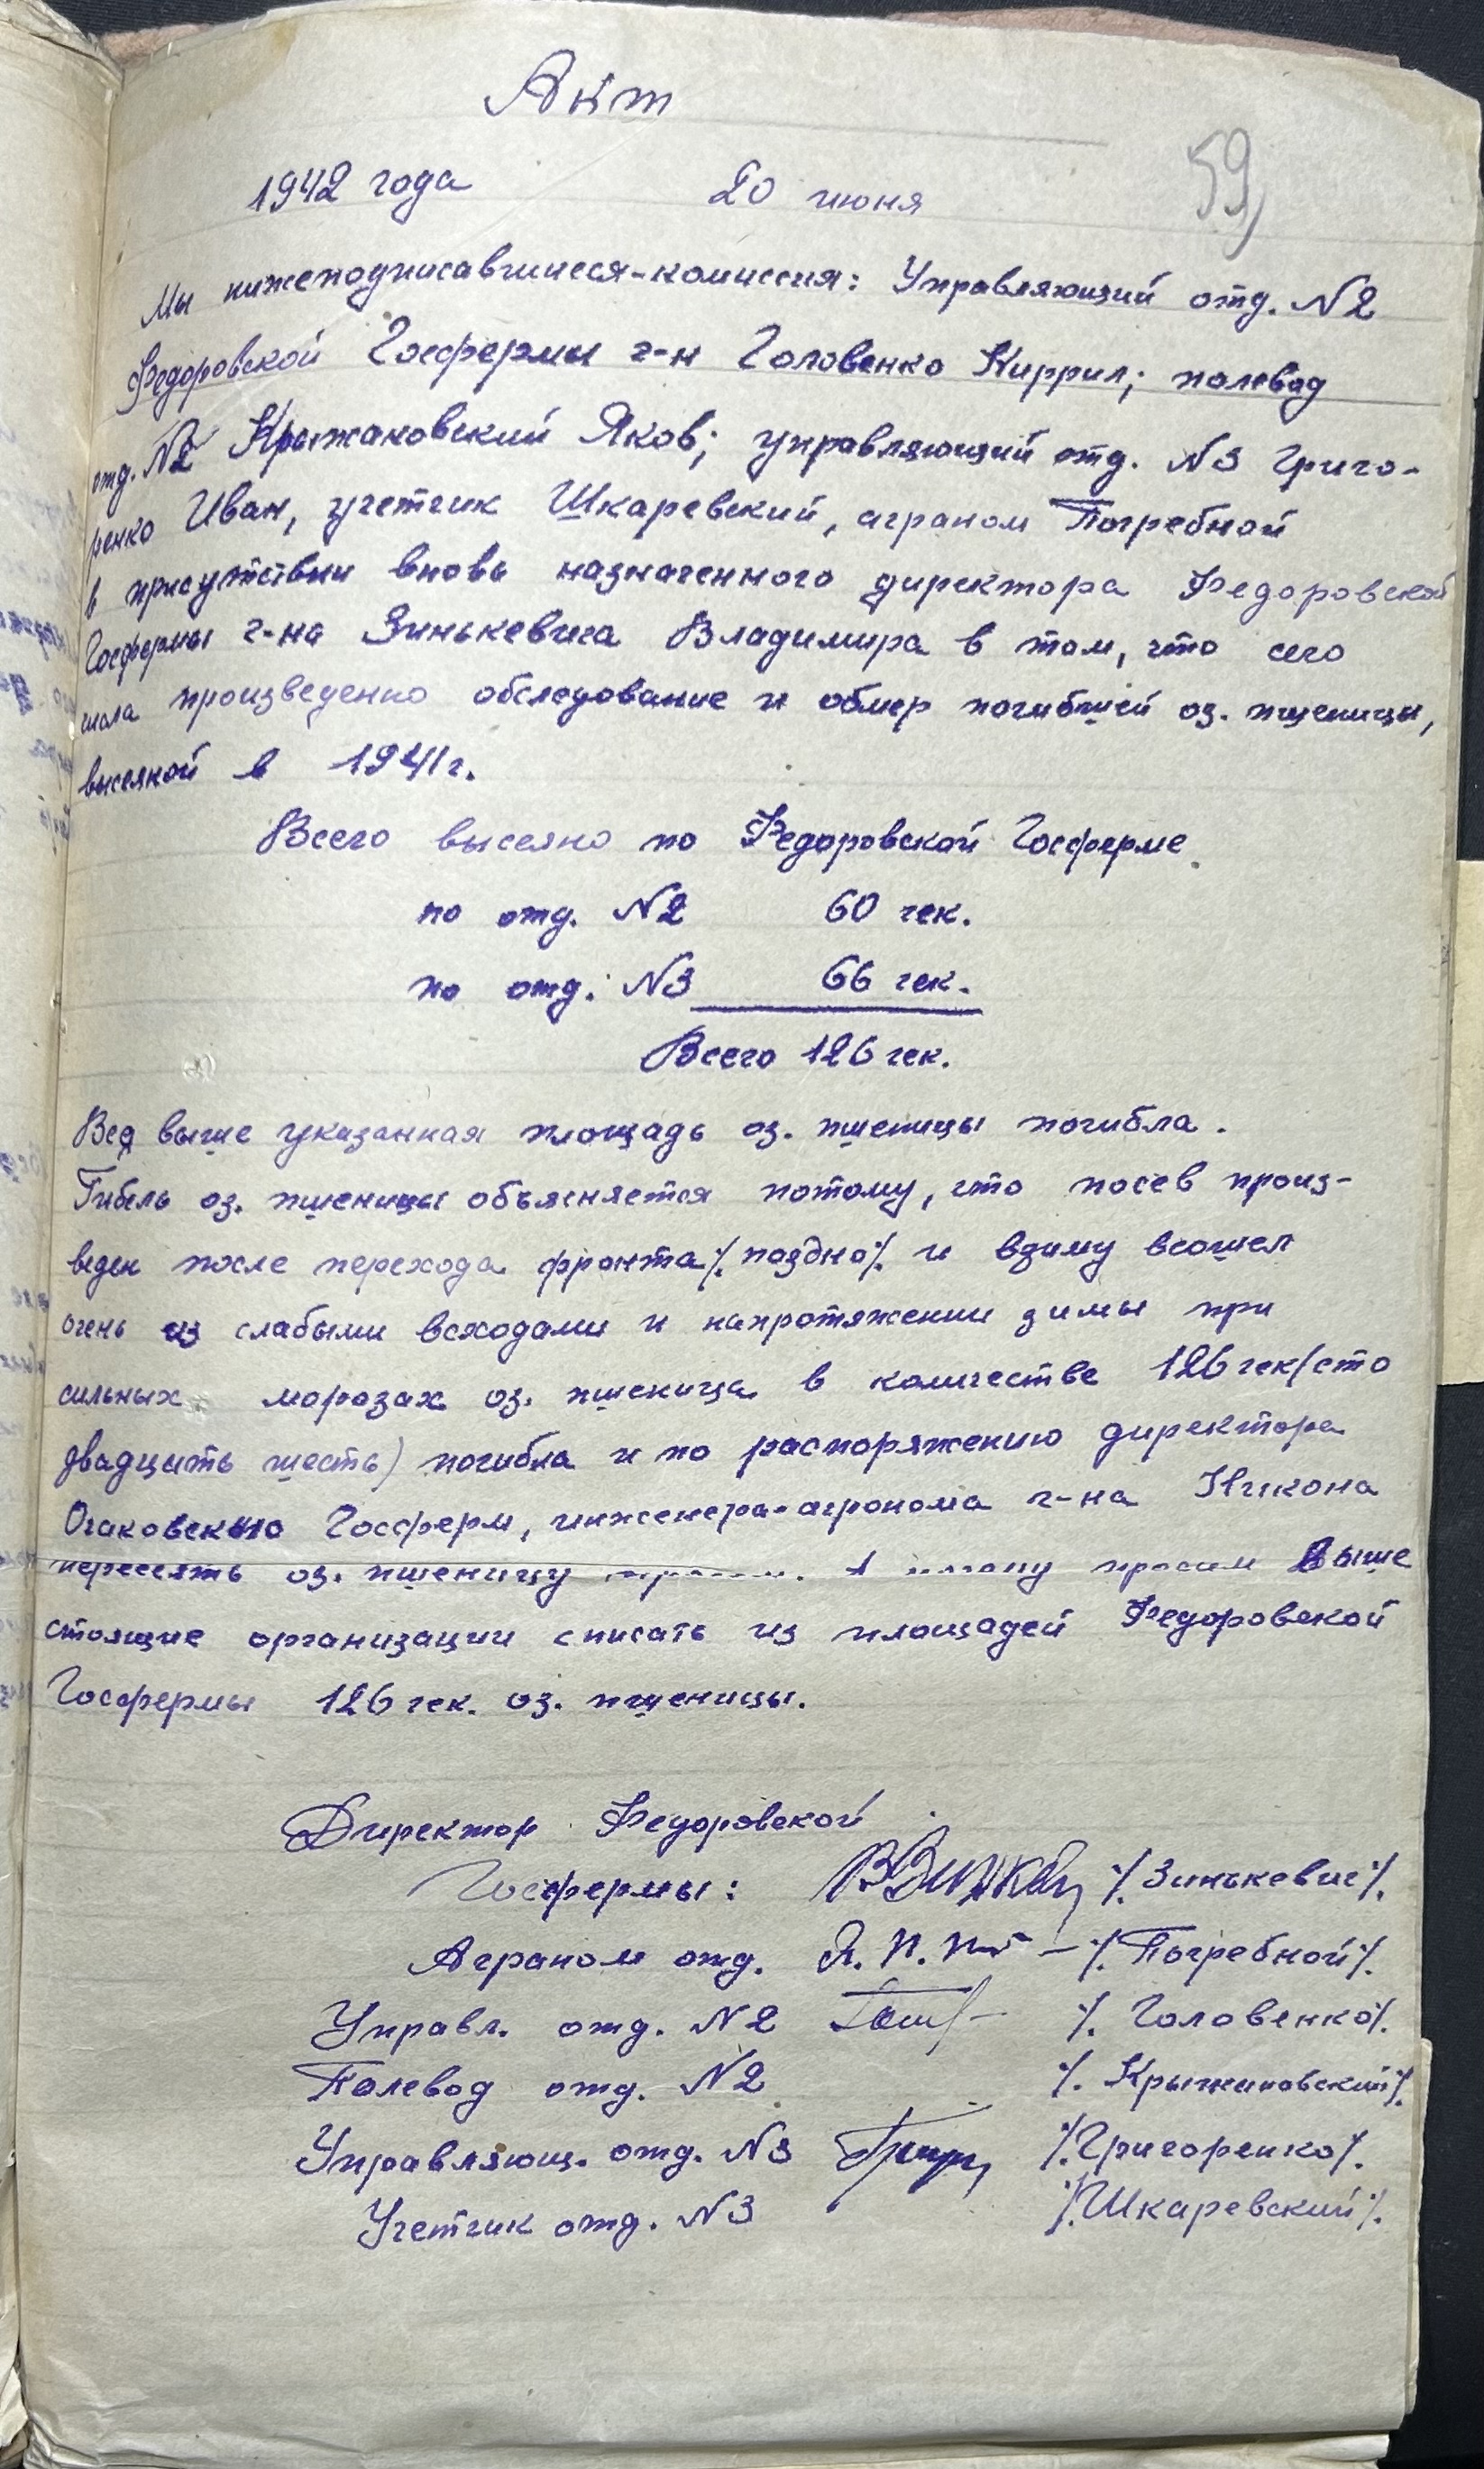 Акт
59
1942 года 20 июня
Мы нижеподписавшиеся-комиссия: Управляющий отд. N2
Федоровской Госфермы г-н Головенко Киррил; полевод
отд. N2 Крыжановский Яков; управляющий отд. N3 Григо-
ренко Иван, учетчик Шкаревский, аграном Погребной
в присутствии вновь назначенного директора Федоровской
Госфермы г-на Зинькевича Владимира в том, что сего
числа произведенно обследование и обмер погибшей оз. пшеницы,
высеяной в 1941 г.
Всего высеяно по Федоровской Госферме
по отд. N2 60 гек.
по отд. N3 66 гек.
Всего 126 гек.
Вся выше указанная площадь оз. пшеницы погибла.
Гибель оз. пшеницы объясняется потому, что посев произ-
веден после перехода фронта ./. поздно ./. и взиму вошел
очень из слабыми всходами и напротяжении зимы при
сильных морозах оз. пшеница в количестве 126 гек (сто
двадцать шесть) погибла и по распоряжению директора
Очаковского Госферм, инженера-агронома г-на Никона
пересеять оз. пшеницу просим выше
стоящие организации списать из площадей Федоровской
Госфермы 126 гек. оз. пшеницы.
Директор Федоровской
Госфермы: ./. Зинькевич ./.
Аграном отд. ./. Погребной ./.
Управл. отд. N2 ./. Головенко ./.
Полевод отд. N2 ./. Крыжановский ./.
Управляющ. отд. N3 ./. Григоренко ./.
Учетчик отд. N3 ./. Шкаревский ./.